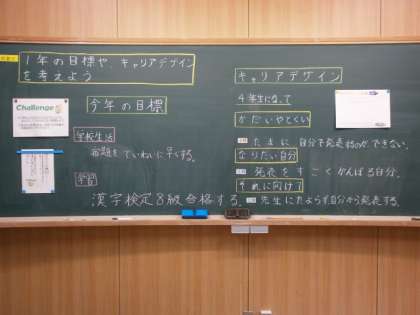 1年の目標や、キャリアデザイン
を考えよう
Challenge
今年の目標
学校生活
宿題をていねいに早くする。
学習
漢字検定8級合格する。
キャリアデザイン
4年生になって
かだいやとくい
たまに自分で発表するのができない。
なりたい自分
発表をすごくがんばる自分。
それに向けて
先生にたよらず自分から発表する。